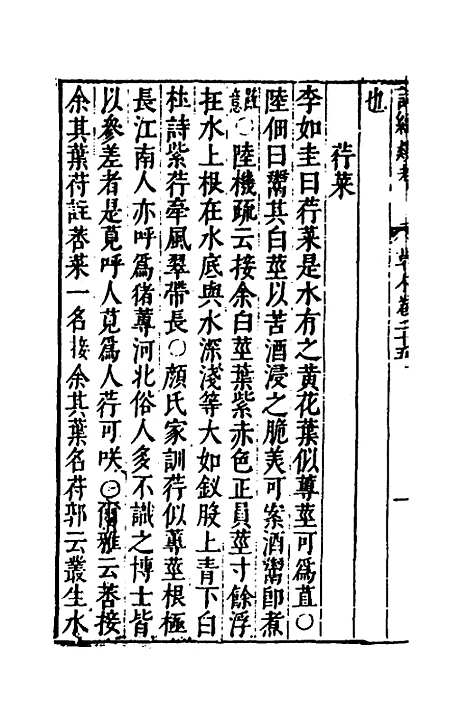 詩經類考　卷二十五　一
也
荇菜
李如圭曰荇菜是水有之黄花葉似蓴莖可爲苴〇
陸佃曰鬻其白莖以苦酒浸之脆美可案酒鬻卽煮
〇陸機疏云接余白莖葉紫赤色正員莖寸餘浮
在水上根在水底與水深淺等大如釵股上青下白
杜詩紫荇牽風翠帶長〇顔氏家訓荇似蓴莖根極
長江南人亦呼爲猪蓴河北俗人多不識之博士皆
以參差者是莧呼人莧爲人荇可咲〇爾雅云莕接
余其葉苻註莕菜一名接余其葉名苻郭云叢生水